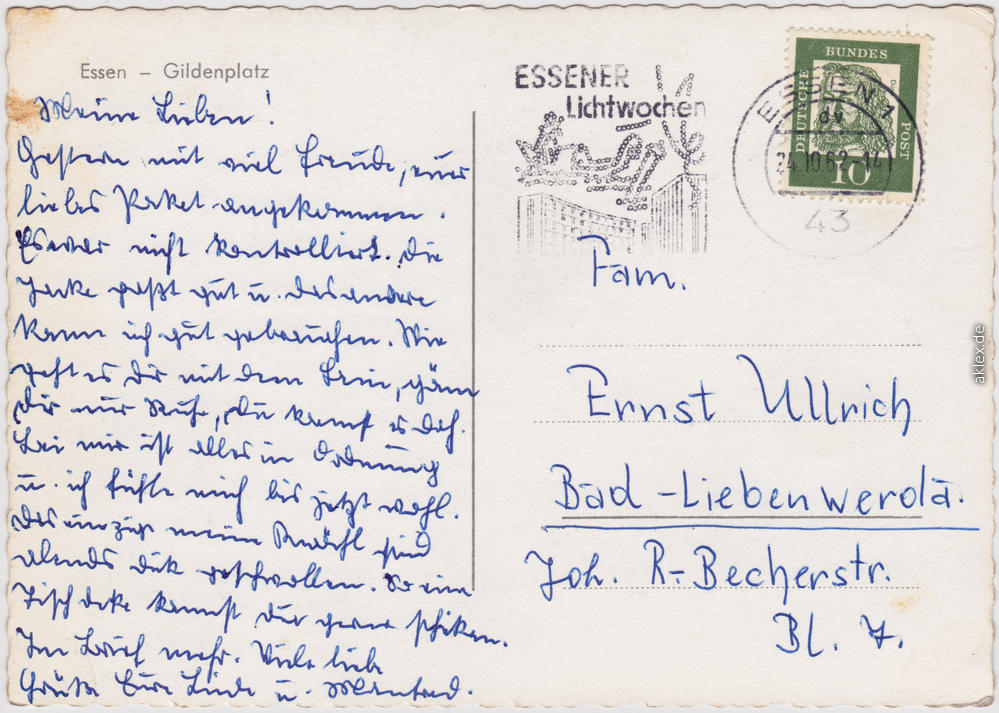 Essen – Gildenplatz
Meine Lieben!
Gestern mit viel Freude, euer
liebes Paket angekommen.
Es war nicht kontrolliert. Die
Jacke paßt gut u. das andere
kann ich gut gebrauchen. Wie
geht es Dir mit dem Bein, gönn
Dir nur Ruhe, Du kannst es doch.
Bei mir ist alles in Ordnung
u. ich fühle mich bis jetzt wohl.
Das einzige meine sind
abends dick geschwollen. So eine
Tischdeke kannst Du gerne schiken.
Im Brief mehr. Viele liebe
Grüße Eure Linde u. Manfred.
ESSENER
Lichtwochen
ESSEN 1
24.10.62-14
43
DEUTSCHE
BUNDES
POST
10
Fam.
Ernst Ullrich
Bad-Liebenwerda.
Joh. R-Becherstr.
Bl. 7.
aklex.de